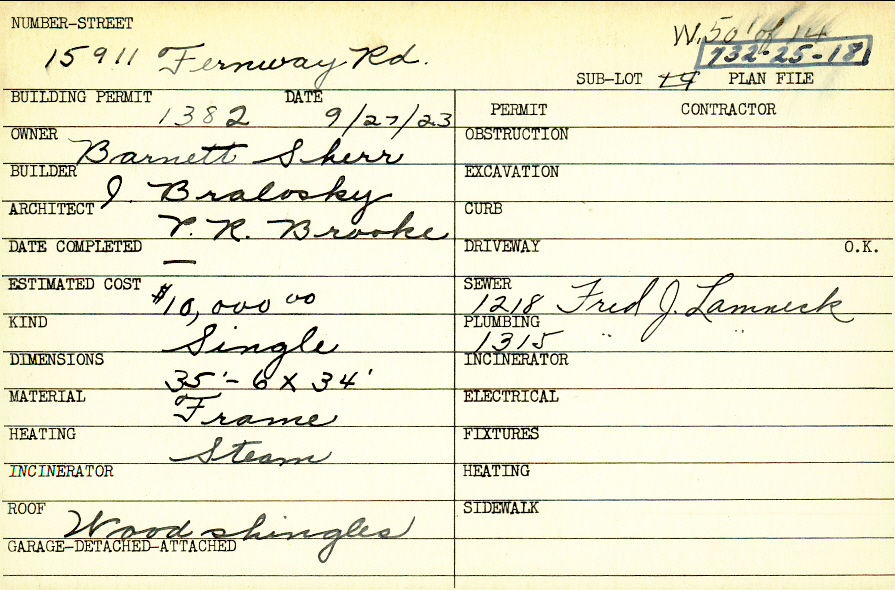 NUMBER-STREET
15911 Fernway Rd.
W. 50' of 14
732-25-18
SUB-LOT 14 PLAN FILE
BUILDING PERMIT 1382 DATE 9/27/23
OWNER Barnett Sherr
BUILDER J. Bralosky
ARCHITECT P. R. Brooke
DATE COMPLETED —
ESTIMATED COST $10,000 00
KIND Single
DIMENSIONS 35'-6 X 34'
MATERIAL Frame
HEATING Steam
INCINERATOR
ROOF Wood shingles
GARAGE-DETACHED-ATTACHED
PERMIT CONTRACTOR
OBSTRUCTION
EXCAVATION
CURB
DRIVEWAY O.K.
SEWER 1218 Fred J. Lamneck
PLUMBING 1315 " "
INCINERATOR
ELECTRICAL
FIXTURES
HEATING
SIDEWALK